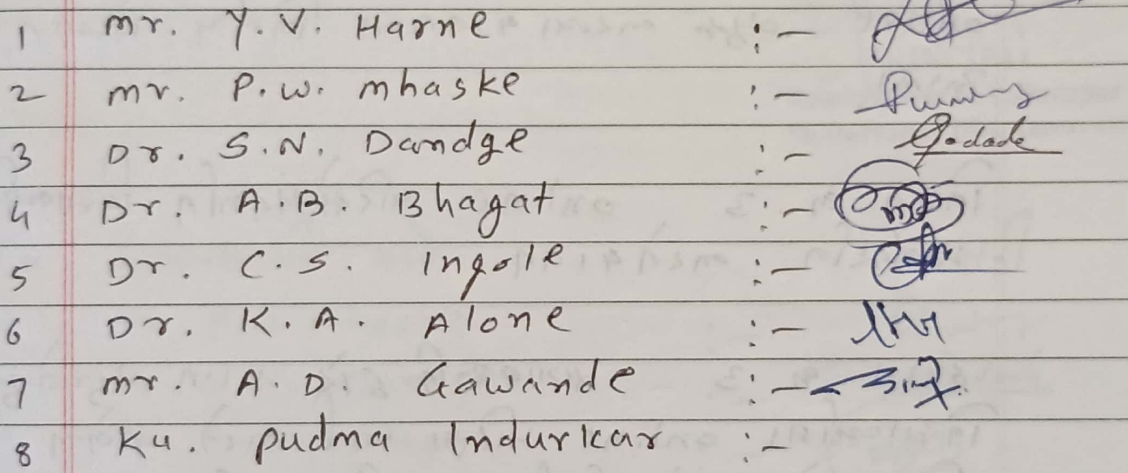 1 mr. Y. V. Harne :-
2 mr. P. W. mhaske :-
3 Dr. S. N. Dandge :-
4 Dr. A. B. Bhagat :-
5 Dr. C. S. Ingole :-
6 Dr. K. A. Alone :-
7 mr. A. D. Gawande :-
8 Ku. pudma Indurkar :-